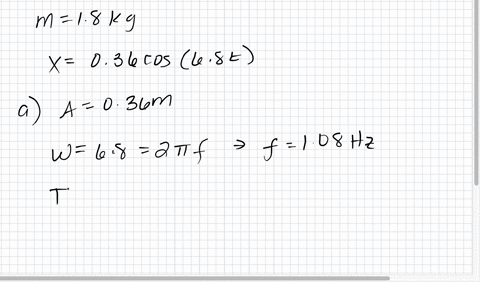 m = 1.8 kg
x = 0.36 cos (6.8t)
a) A = 0.36m
w = 6.8 = 2πf → f = 1.08 Hz
T